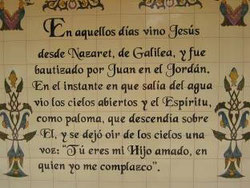 En aquellos días vino Jesús
desde Nazaret, de Galilea, y fue
bautizado por Juan en el Jordán.
En el instante en que salía del agua
vio los cielos abiertos y el Espíritu,
como paloma, que descendía sobre
El, y se dejó oir de los cielos una
voz: "Tú eres mi Hijo amado, en
quien yo me complazco".